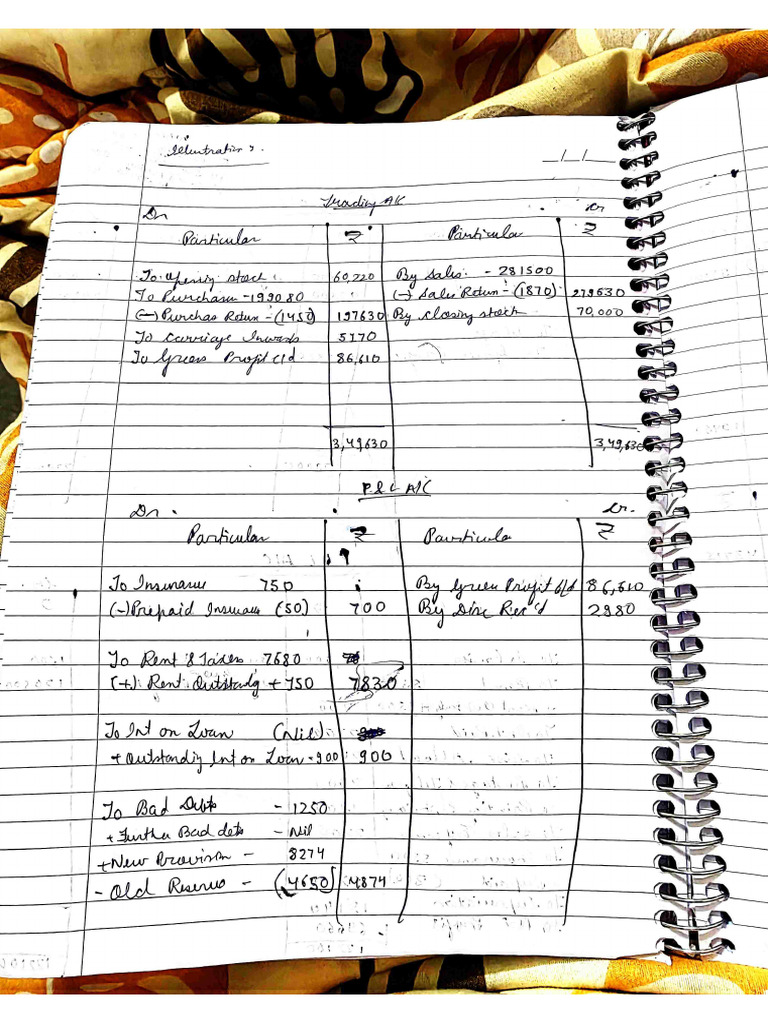 Illustration 2.
_/_/_
Trading A/C
Dr Cr
Particular ₹ Particular ₹
To Opening stock 60,220 By Sales - 281500
To Purchases - 199080 (-) Sales Return - (1870) 279630
(-) Purchas Return - (1450) 197630 By Closing stock 70,000
To Carriage Inwards 5170
To Gross Profit c/d 86,610
3,49,630 3,49,630
P & L A/C
Dr. Cr.
Particular ₹ Particula ₹
To Insurance 750 By Gross Profit b/d 86,610
(-) Prepaid Insurance (50) 700 By Disc Rec'd 2980
To Rent & Taxes 7680
(+) Rent Outstandg + 150 7830
To Int on Loan (Nil)
+ Outstandig Int on Loan - 900 900
To Bad Debts - 1250
+ Further Bad debts - Nil
+ New Provision - 8274
- Old Reserve - (4650) 4874